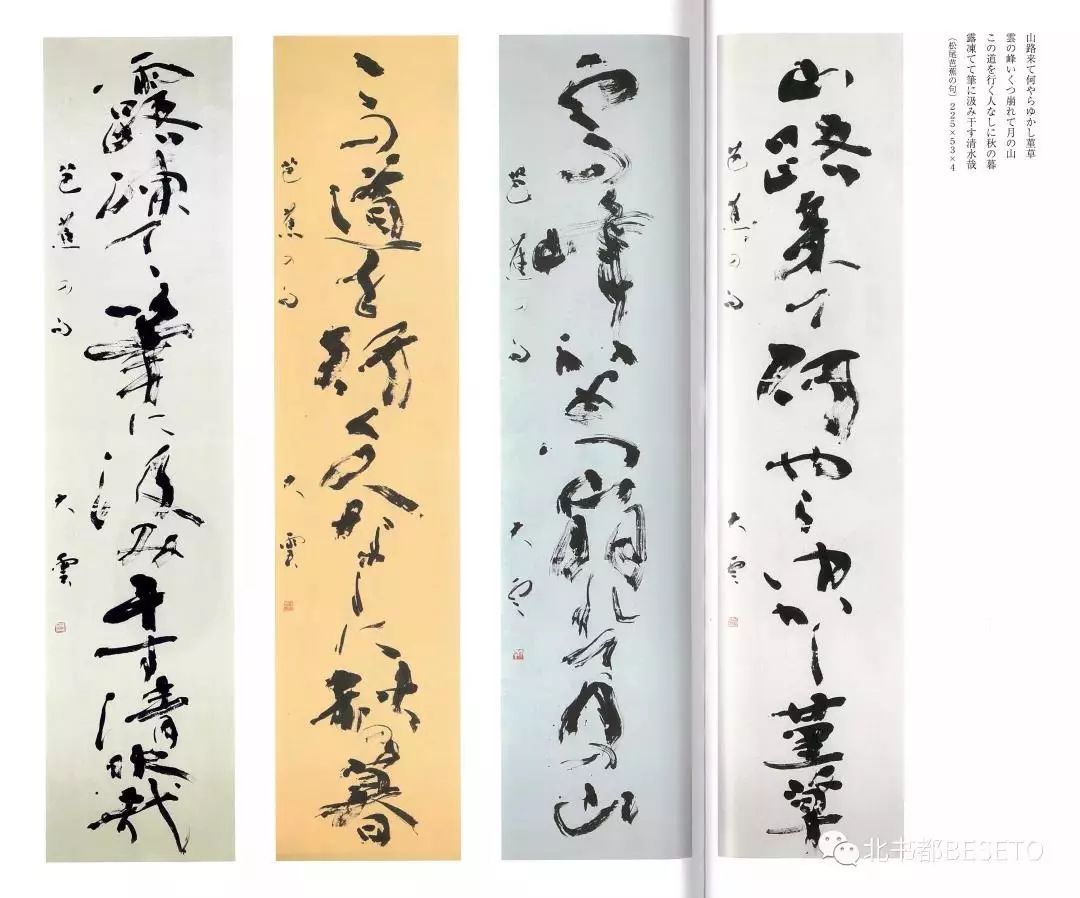 山路来て何やらゆかし菫草
雲の峰いくつ崩れて月の山
この道を行く人なしに秋の暮
露凍てて筆に汲み干す清水哉
(松尾芭蕉の句) 225×53×4
山路来て何やらゆかし菫草
芭蕉の句 大雲
雲の峰いくつ崩れて月の山
芭蕉の句 大雲
この道を行く人なしに秋の暮
芭蕉の句 大雲
露凍てゝ筆に汲み干す清水哉
芭蕉の句 大雲
北书都BESETO